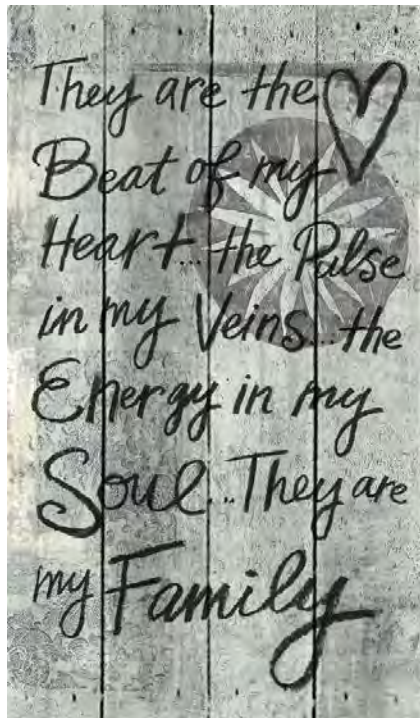 They are the
Beat of my
Heart...the Pulse
in my Veins...the
Energy in my
Soul...They are
my Family